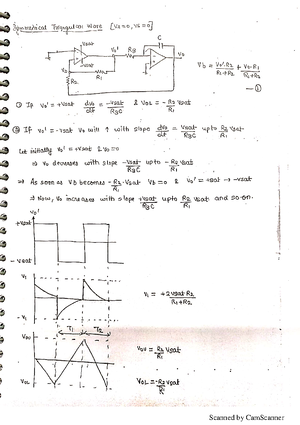 Symmetrical Triangular Wave [Vs=0, Vs=0]
+Vsat
Vo'
R3
C
Vo
-Vsat
R1
R2
Vb = Vo'.R2/R1+R2 + Vo.R1/R1+R2
— ①
① If Vo' = +Vsat dVo/dt = -Vsat/R3C & VOL = -R2/R1 Vsat
② If Vo' = -Vsat Vo will ↑ with slope dVo/dt = Vsat/R3C upto R2/R1 Vsat.
Let initially Vo' = +Vsat & Vo=0
⇒ Vo decreases with slope -Vsat/R3C upto -R2/R1 Vsat
⇒ As soon as Vo becomes -R2/R1 Vsat Vb=0 & Vo' = +Vsat → -Vsat
⇒ Now, Vo increases with slope +Vsat/R3C upto R2/R1 Vsat and so on.
Vo'
+Vsat
-Vsat
V1
V1
V1 = +2Vsat R2/R1+R2
T1
T2
VOU
VOL
VOU = R2/R1 Vsat
VOL = -R2/R1 Vsat
Scanned by CamScanner